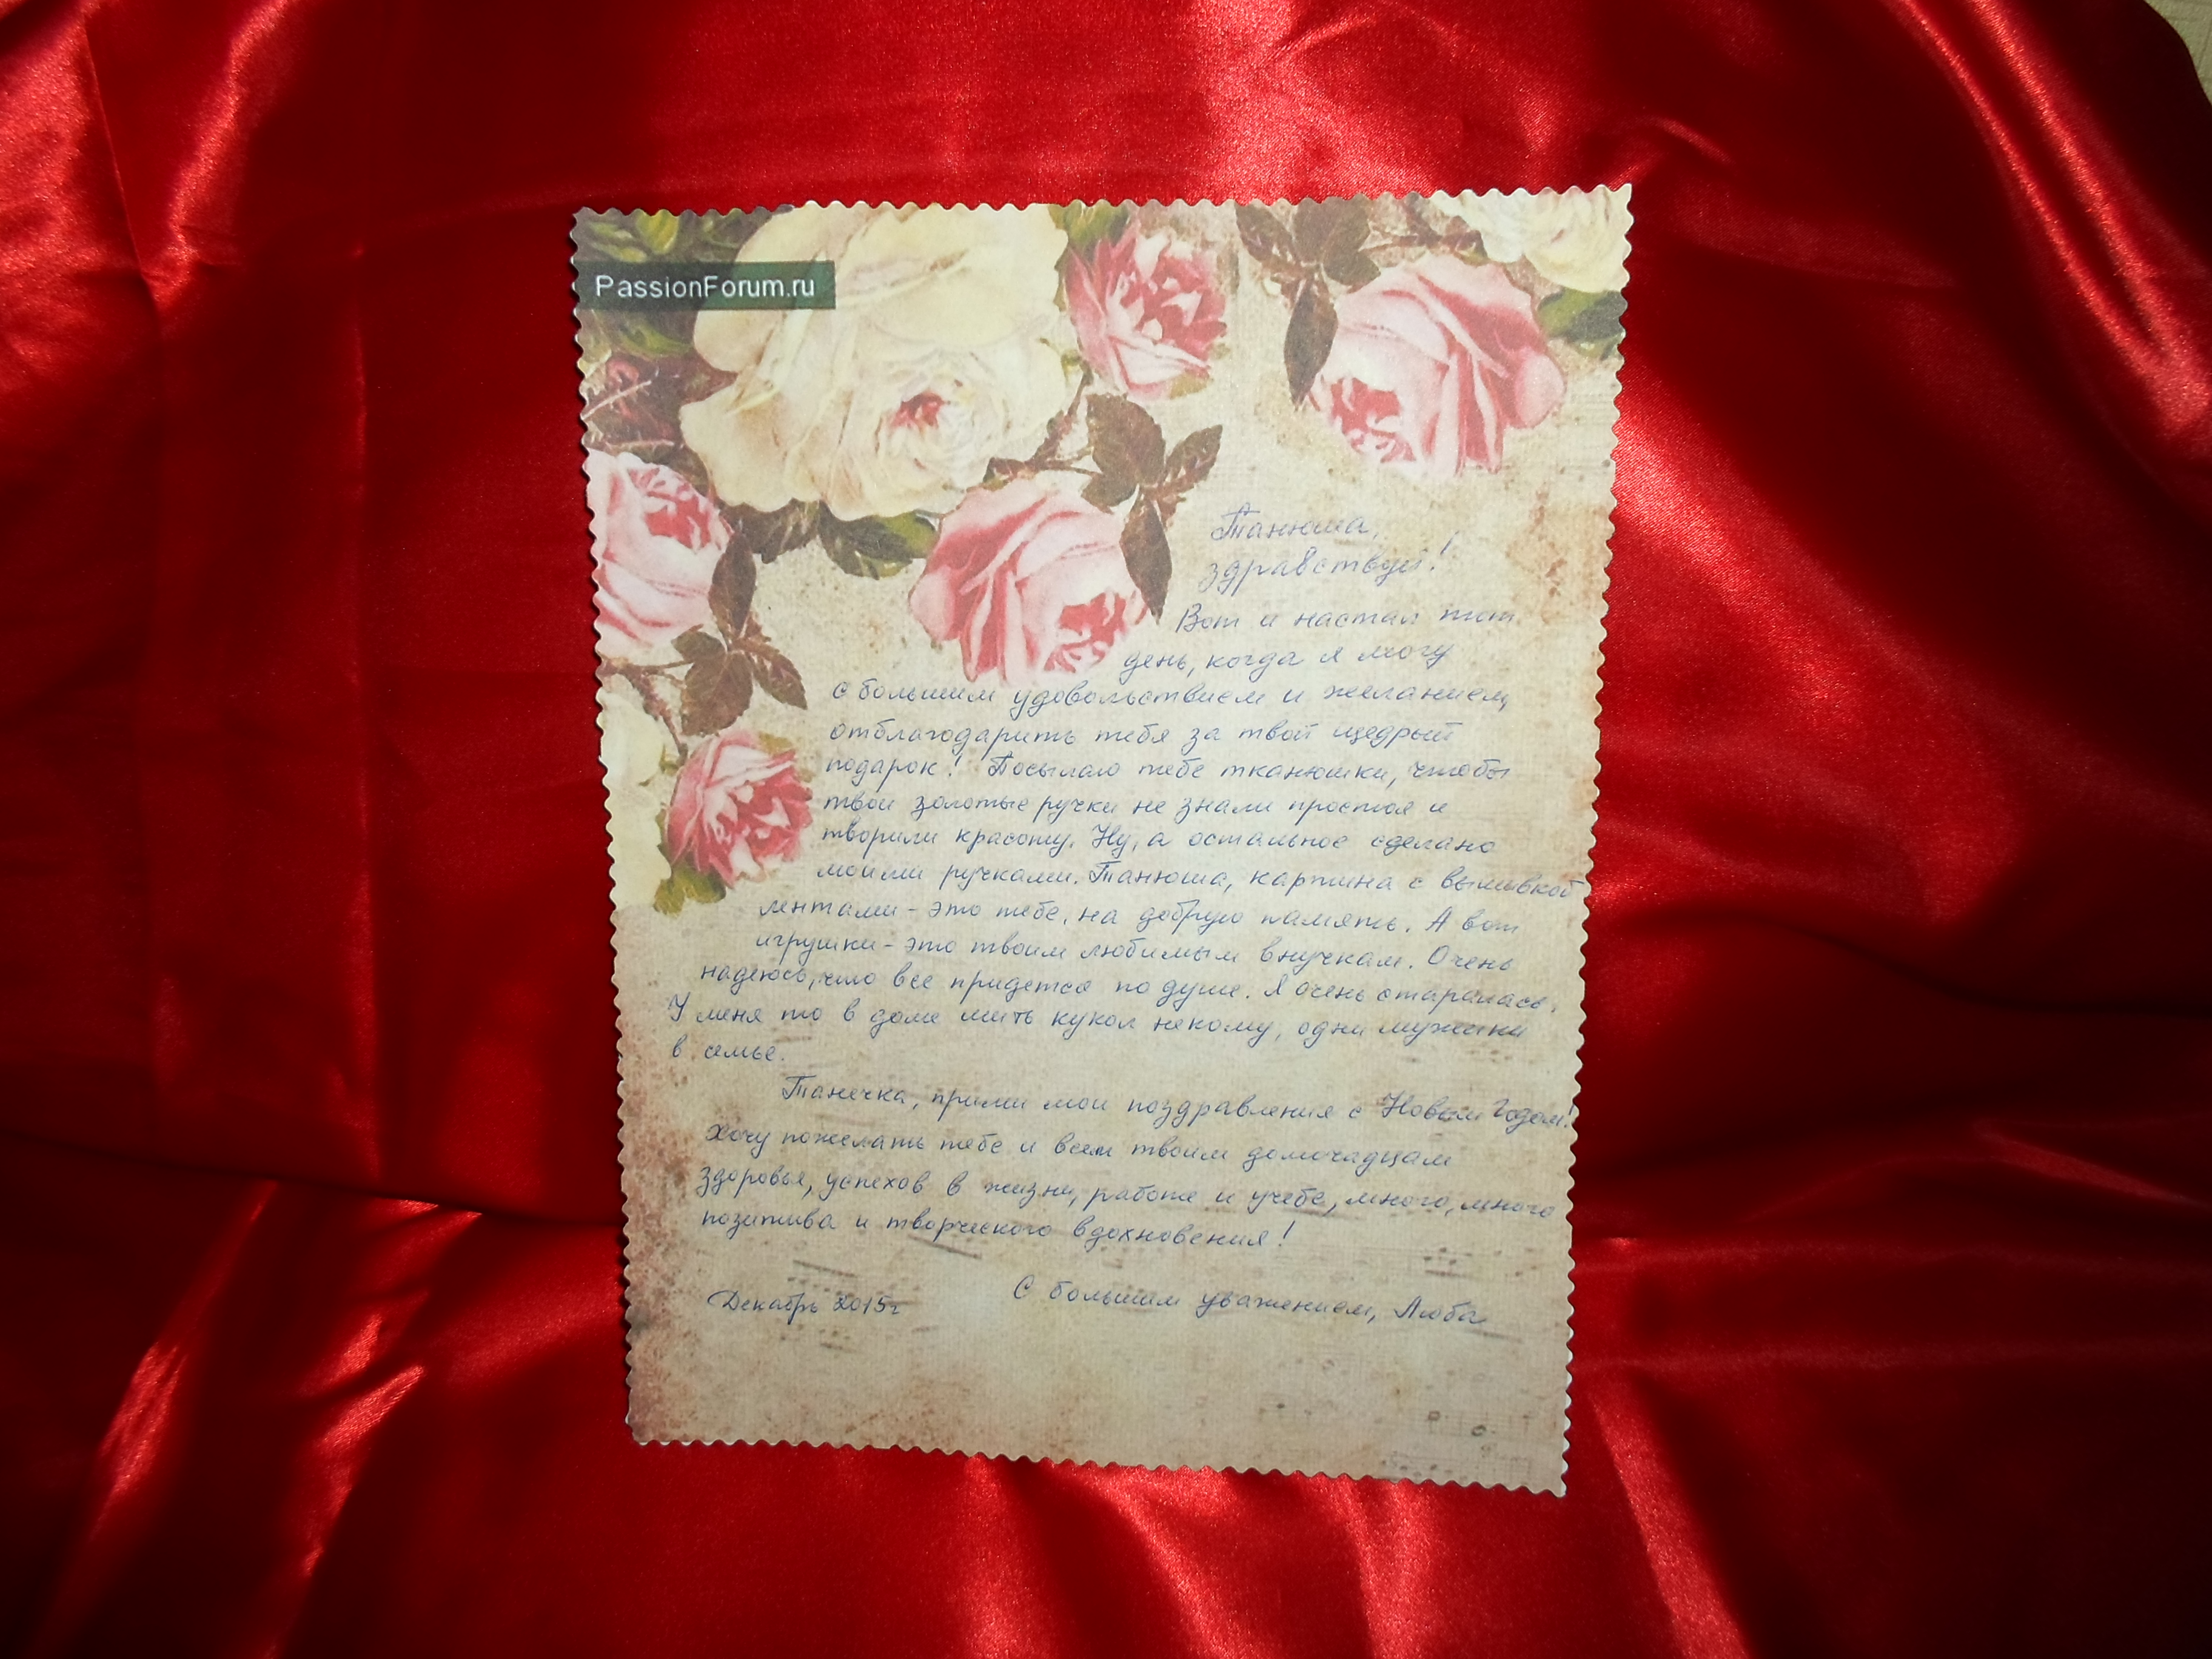 PassionForum.ru
Танюша,
здравствуй!
Вот и настал тот
день, когда я могу
с большим удовольствием и желанием,
отблагодарить тебя за твой щедрый
подарок! Посылаю тебе тканюшки, чтобы
твои золотые ручки не знали простоя и
творили красоту. Ну, а остальное сделано
моими ручками. Танюша, картина с вышивкой
лентами - это тебе, на добрую память. А вот
игрушки - это твоим любимым внучкам. Очень
надеюсь, что все придется по душе. Я очень старалась.
У меня то в доме шить кукол некому, одни мужики
в семье.
Танечка, прими мои поздравления с Новым Годом!
Хочу пожелать тебе и всем твоим домочадцам
здоровья, успехов в жизни, работе и учебе, много, много
позитива и творческого вдохновения!
Декабрь 2015г
С большим уважением, Люба